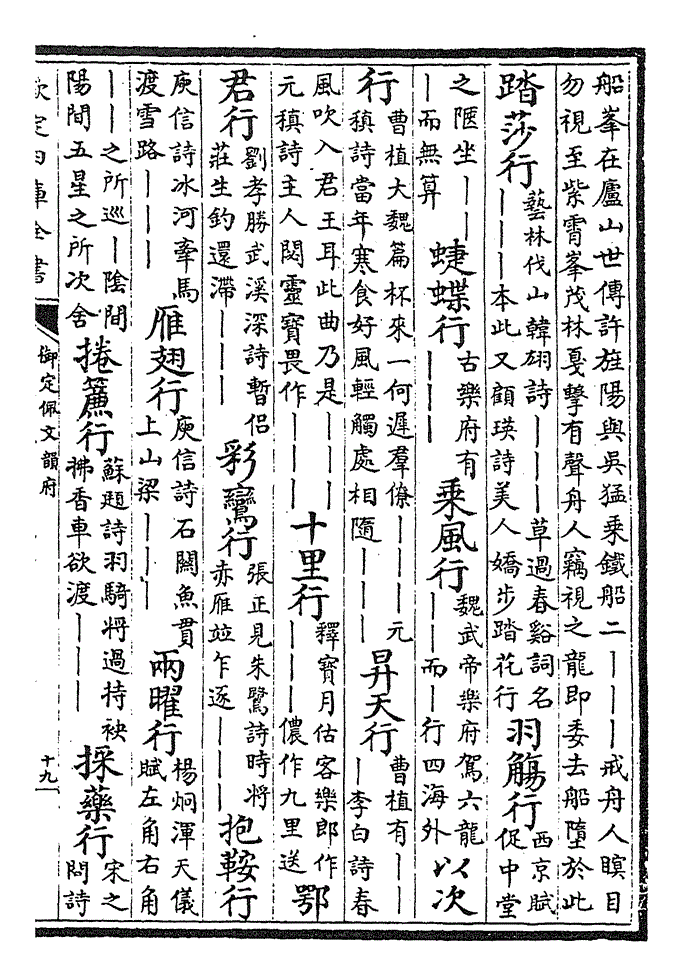 船峯在廬山世傳許旌陽與吳猛乘鐵船二｜｜｜戒舟人瞑目
勿視至紫霄峯茂林戛擊有聲舟人竊視之龍即委去船墮於此
踏莎行
藝林伐山韓翃詩｜｜｜草過春谿詞名
｜｜｜本此又顧瑛詩美人嬌步踏花行
羽觴行
西京賦
促中堂
之陿坐｜｜
｜而無算
蜨蝶行
古樂府有
｜｜｜
乘風行
魏武帝樂府駕六龍
｜｜而｜行四海外
以次
行
曹植大魏篇杯來一何遲羣僚｜｜｜元
稹詩當年寒食好風輕觸處相隨｜｜｜
昇天行
曹植有｜｜
｜李白詩春
風吹入君王耳此曲乃是｜｜｜
元稹詩主人閔靈寶畏作｜｜｜
十里行
釋寶月估客樂郎作
｜｜｜儂作九里送
鄂
君行
劉孝勝武溪深詩暫侣
莊生釣還滯｜｜｜
彩鸞行
張正見朱鷺詩時將
赤雁竝乍逐｜｜｜
抱鞍行
庾信詩冰河牽馬
渡雪路｜｜｜
雁翅行
庾信詩石關魚貫
上山梁｜｜｜
兩曜行
楊炯渾天儀
賦左角右角
｜｜之所巡｜陰間
陽間五星之所次舍
捲簾行
蘇頲詩羽騎將過持袂
拂香車欲渡｜｜｜
採藥行
宋之
問詩
欽定四庫全書
御定佩文韻府
十九